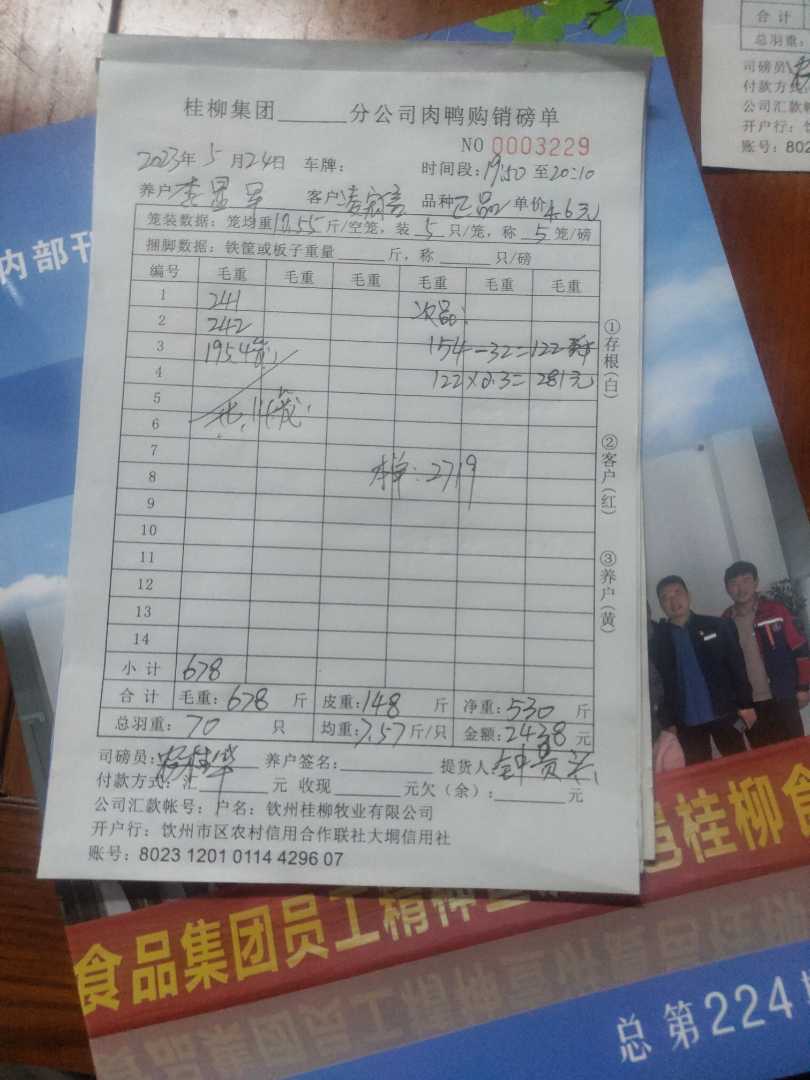 桂柳集团______分公司肉鸭购销磅单
NO 0003229
2023年5月24日 车牌: 时间段:19:50至20:10
养户: 李显军 客户: 品种 正品 单价4.6元
笼装数据: 笼均重 斤/空笼, 装 5 只/笼, 称 5 笼/磅
捆脚数据: 铁筐或板子重量______斤, 称______只/磅
编号 毛重 毛重 毛重 毛重 毛重 毛重
1 241 次品:
2 242
3 195 4笼 154-32=122
4 122×2.3=281元
5
6 共14笼
7
8 本单:2719
9
10
11
12
13
14
小计 678
合计 毛重:678斤 皮重:148斤 净重:530斤
总羽重: 70 只 均重:7.57斤/只 金额:2438元
司磅员:杨桂华 养户签名:______ 提货人:
付款方式:汇______元 收现______元欠(余):______元
公司汇款帐号: 户名: 钦州桂柳牧业有限公司
开户行: 钦州市区农村信用合作联社大垌信用社
账号: 8023 1201 0114 4296 07
①存根(白)
②客户(红)
③养户(黄)
合计
总羽重:
司磅员
付款方式
公司汇款
开户行:
账号: 802
内部刊
食品集团员工精神
桂柳食
总第224